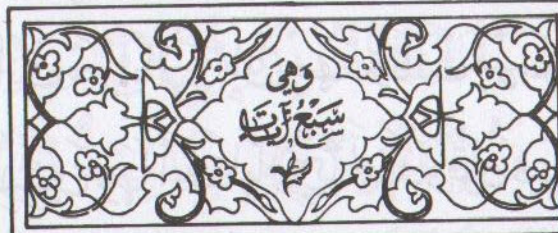 وَهِيَ
سَبْعُ آيَاتٍ